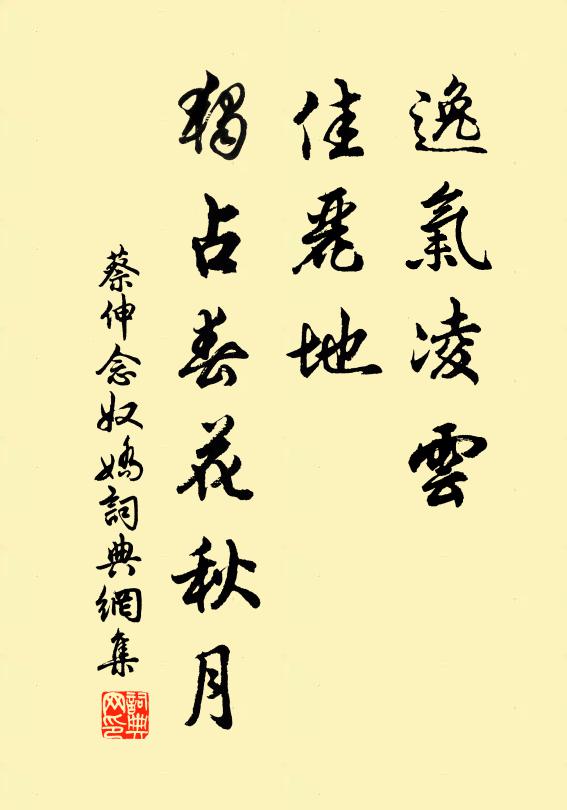 逸氣凌雲
佳麗地
獨占春花秋月
蔡伸念奴嬌詞典網集
詞典網印